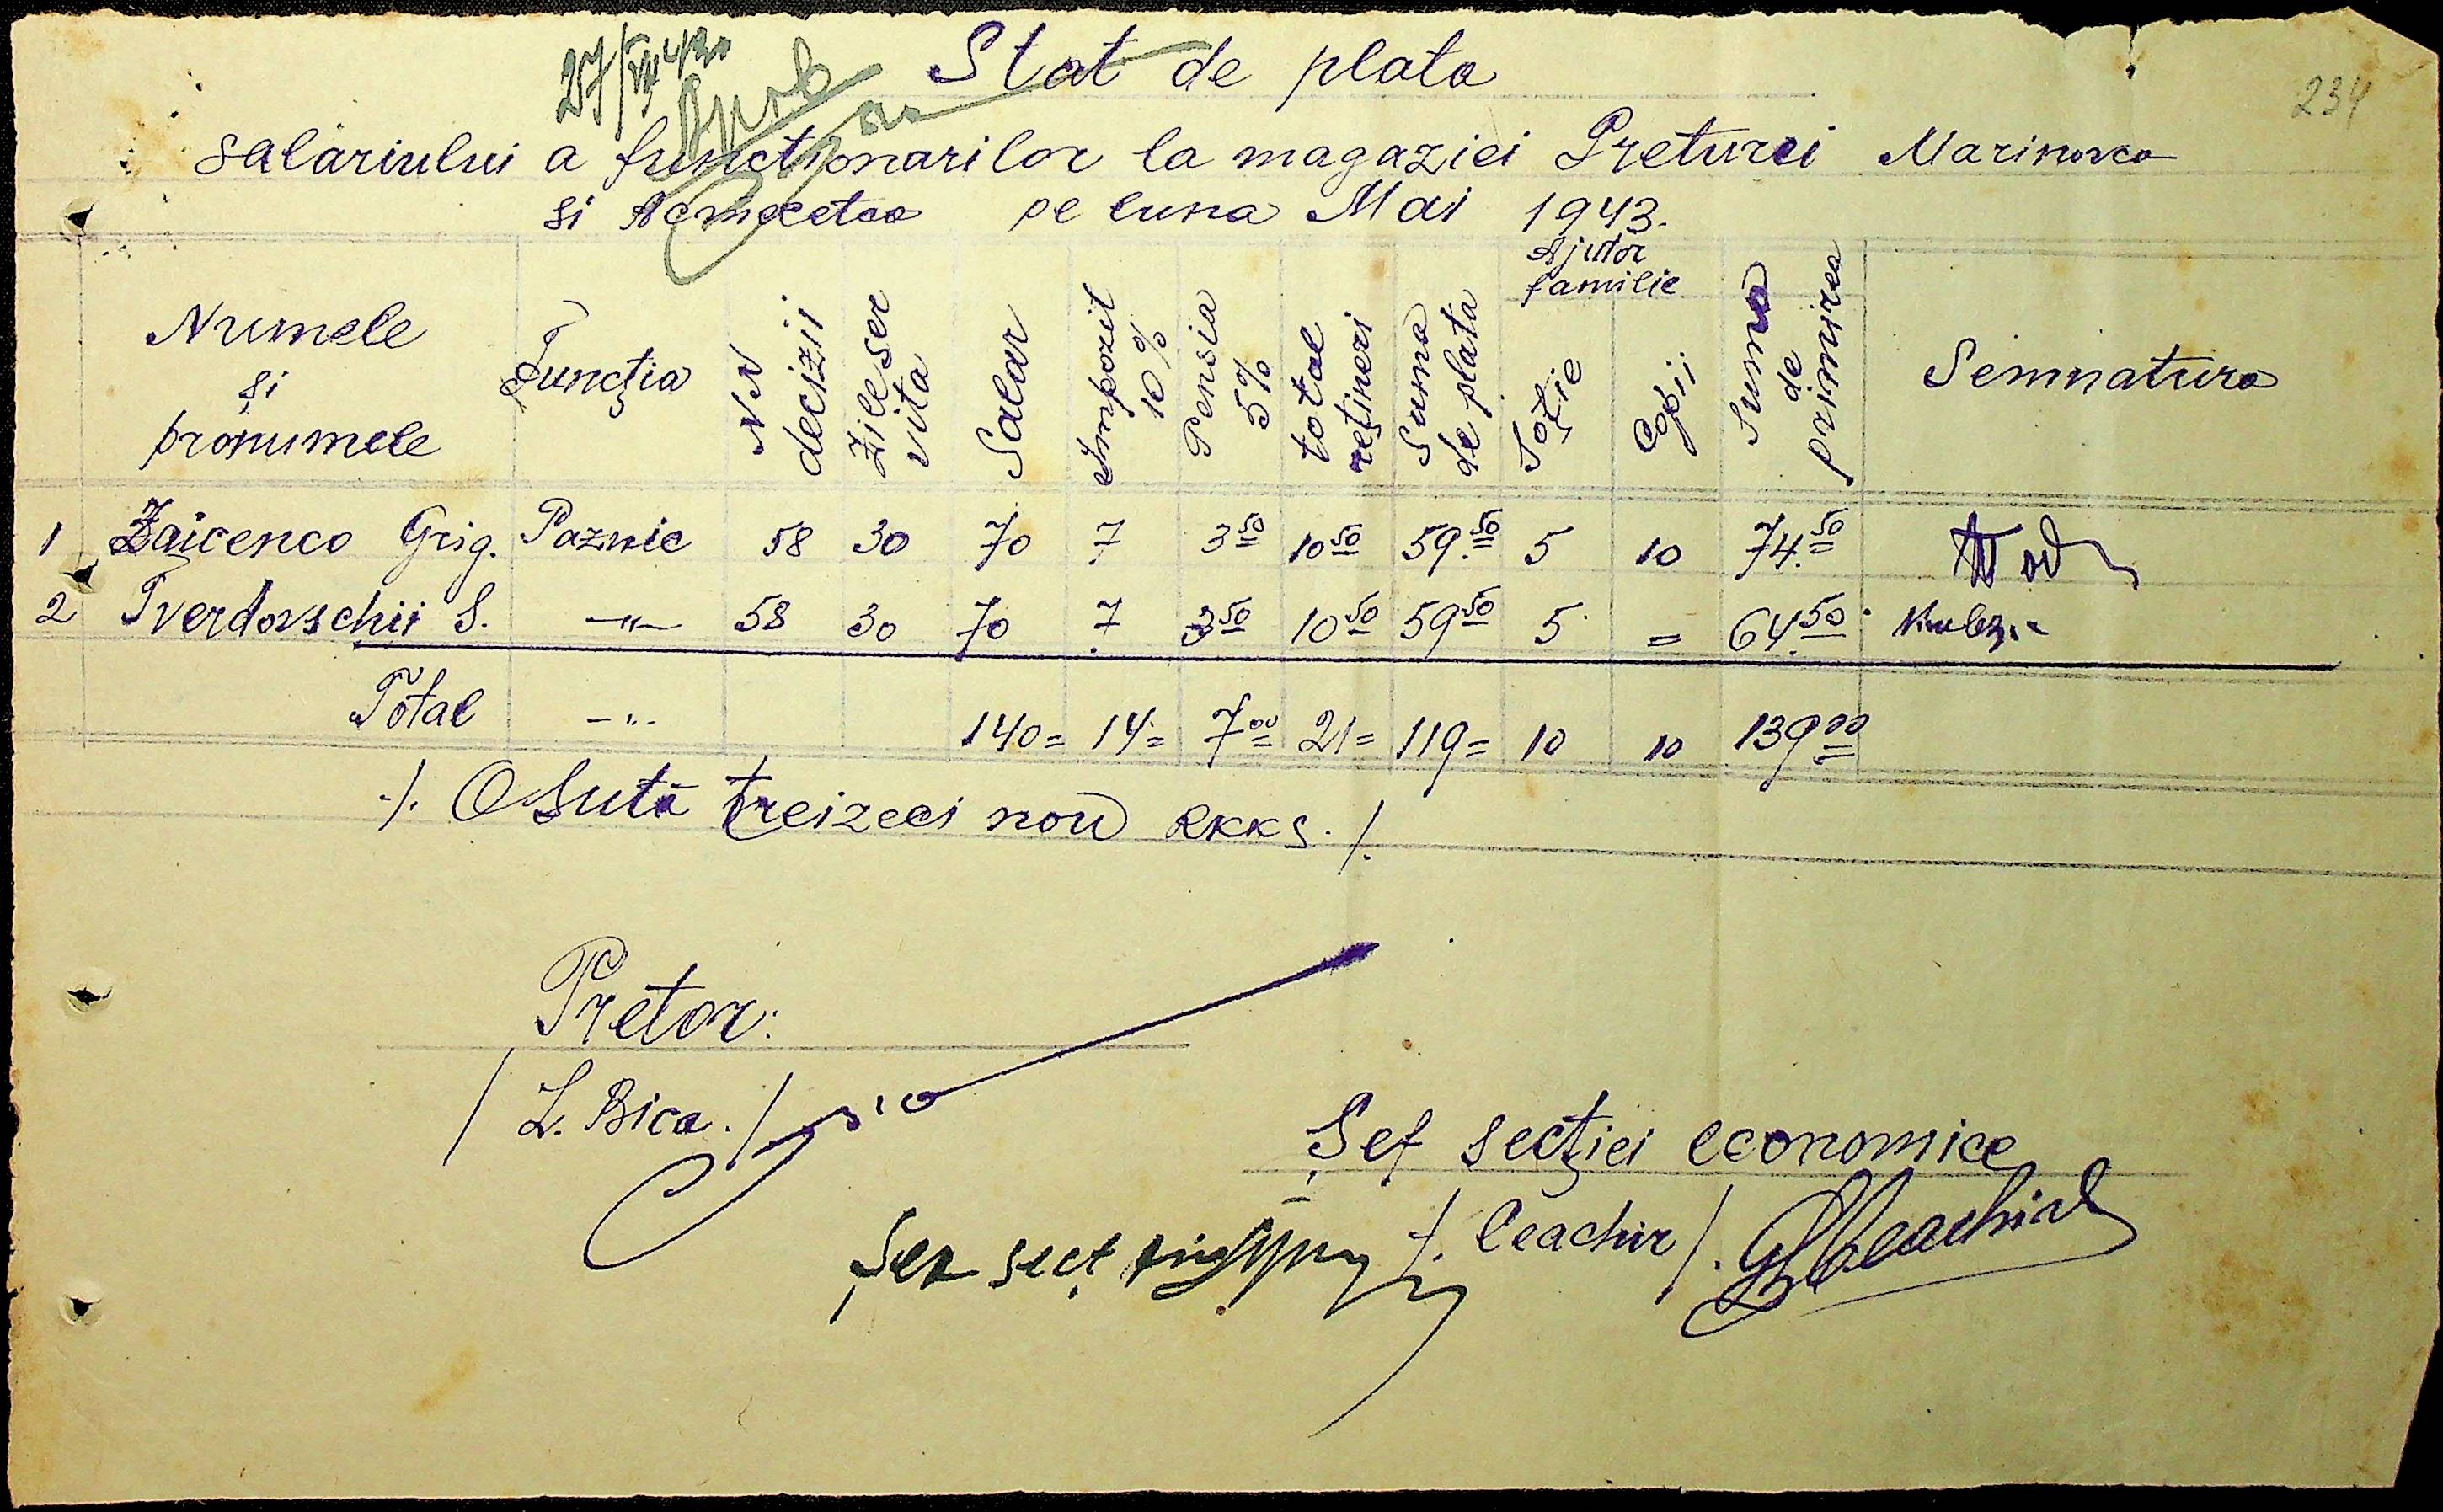 234
Stat de plata
salariului a functionarilor la magaziei Preturei Marinovca
si pe luna Mai 1943.
Numele si pronumele Funcţia NN decizii Zile ser vita Salar Impozit 10% Pensia 5% total reţineri Suma de plata Ajutor familie Soţie Copii Suma de primirea Semnatura
1 Zaicenco Grig. Paznic 58 30 70 7 3 50 10 50 59. 50 5 10 74. 50
2 Tverdovschii S. —"— 58 30 70 7 3 50 10 50 59 50 5 = 64. 50
Total —"— 140= 14= 7 00 21= 119= 10 10 139 00
./. O Sută treizeci nou RKKS ./.
Pretor:
/ L. Bica. /
Şef secţiei economice
/. Ceachir /. Ceachir
Şef secţ.